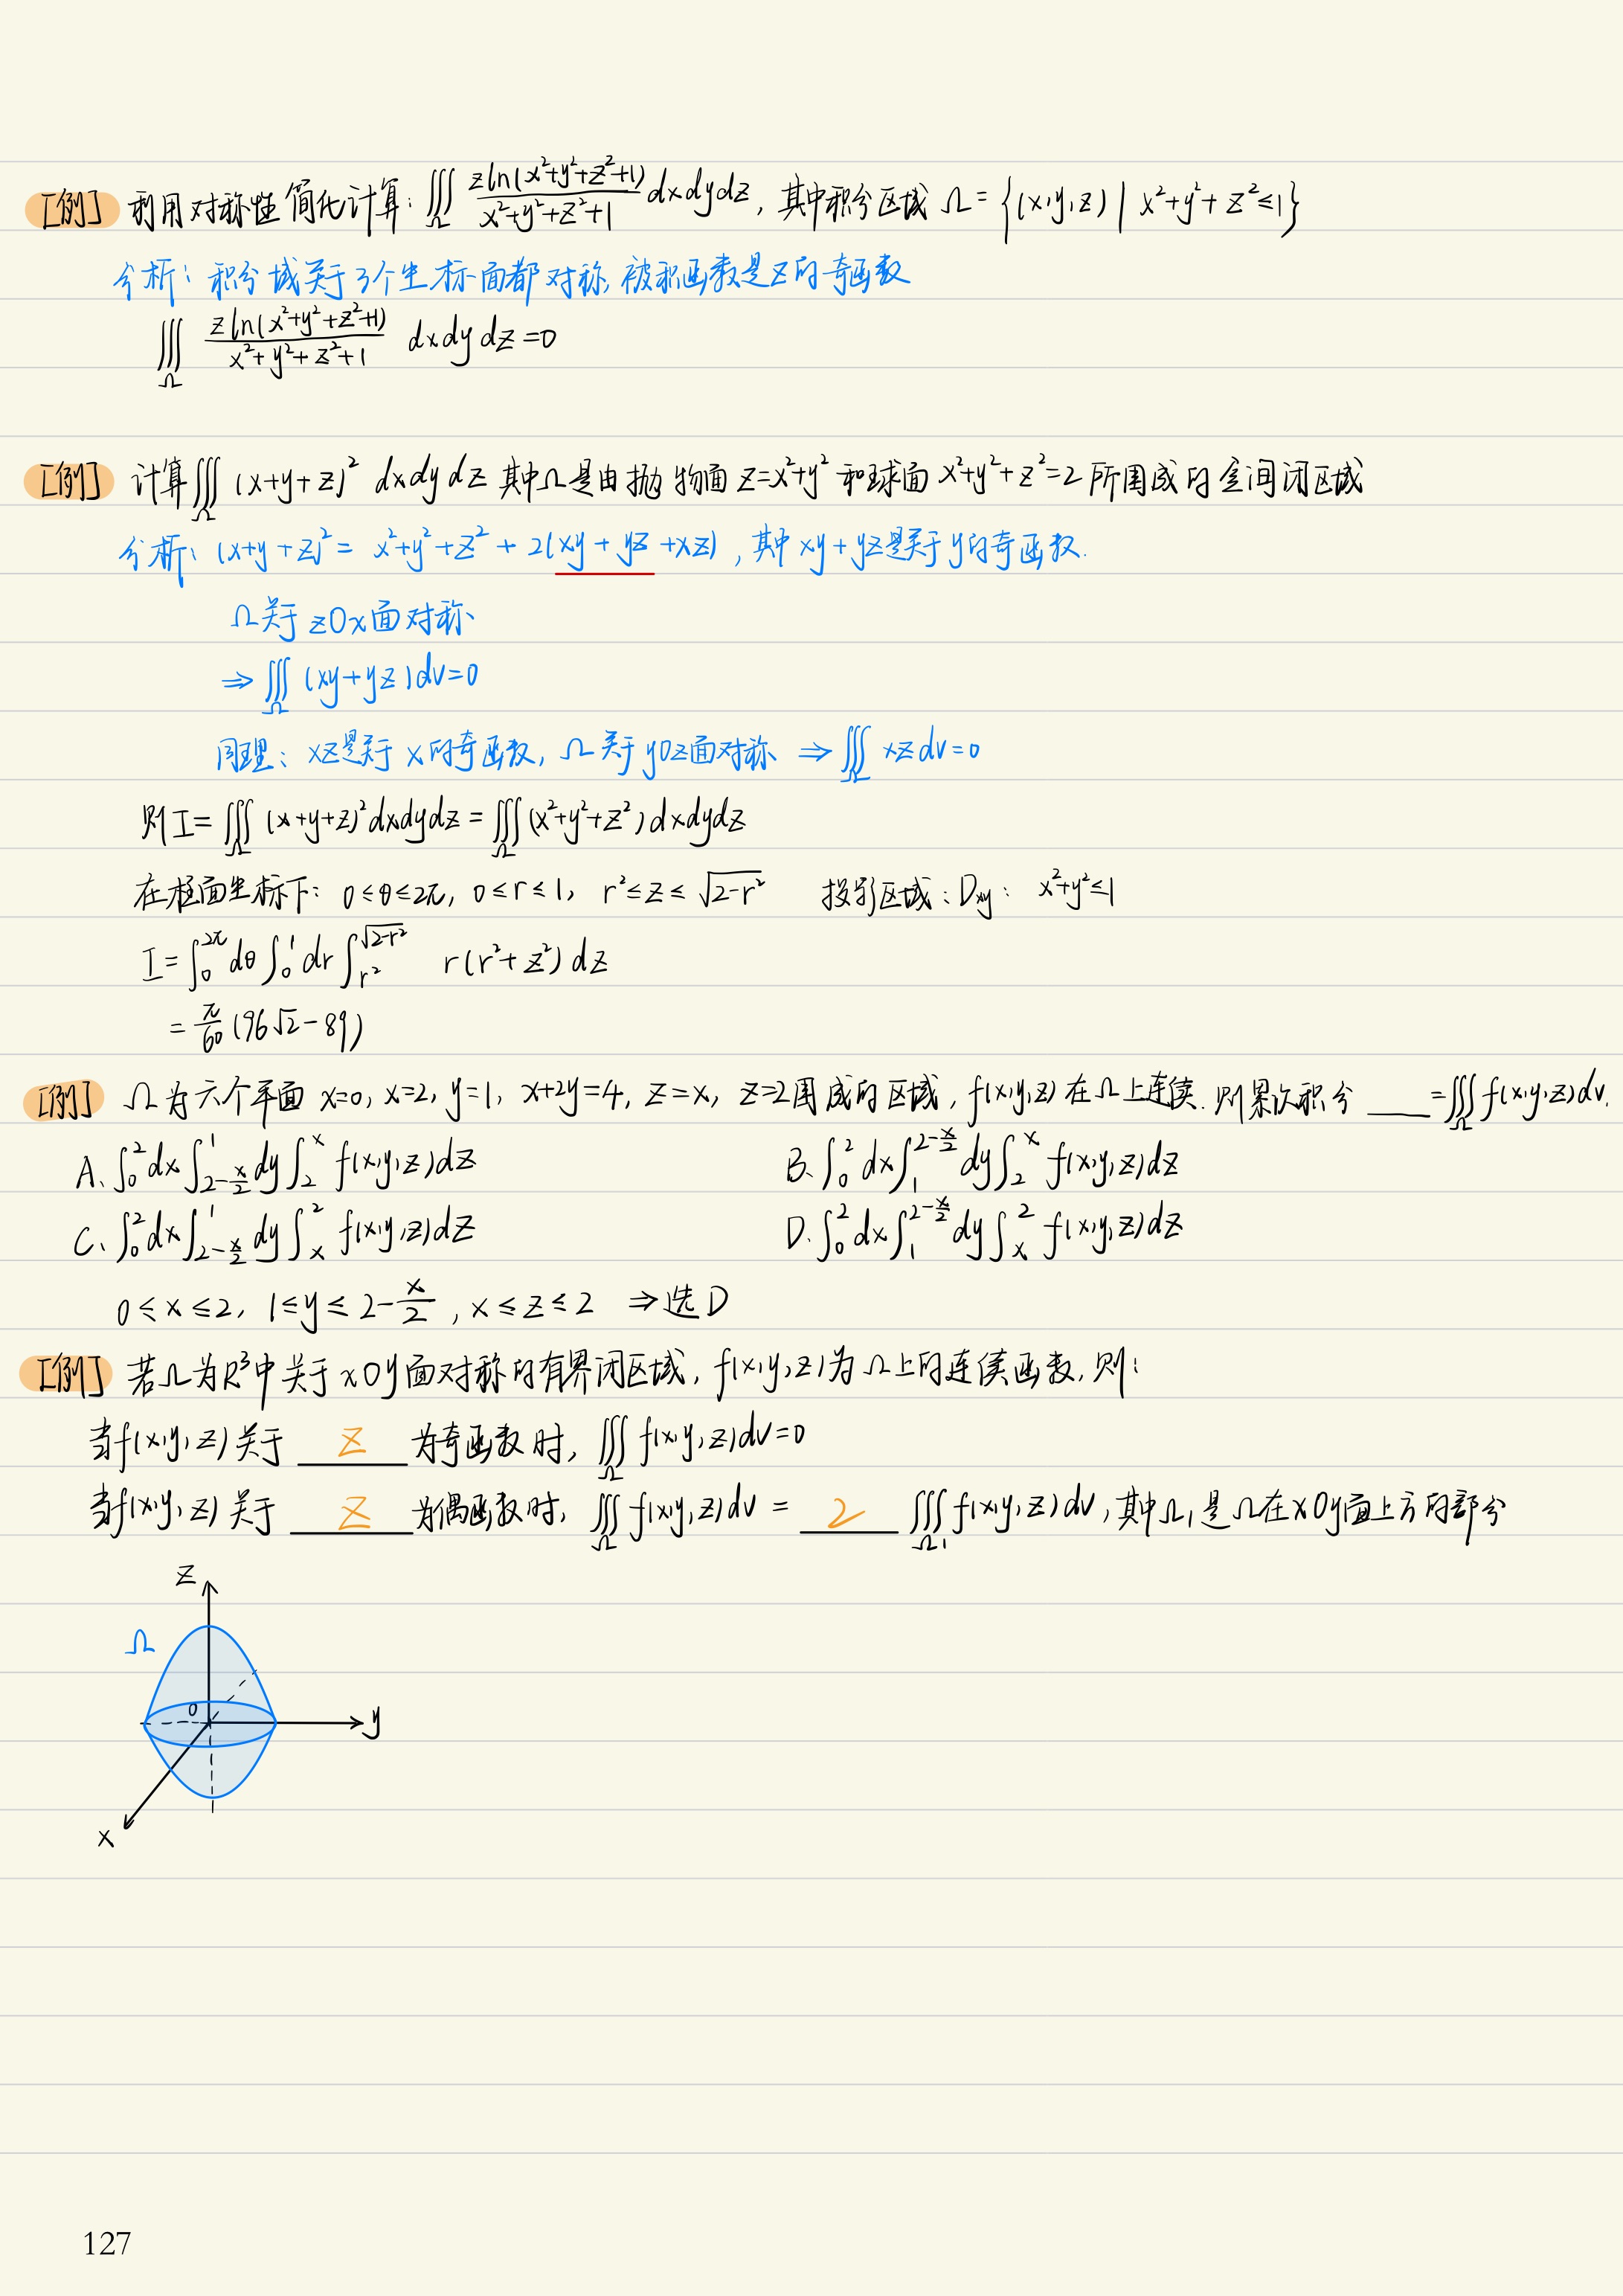 [例] 利用对称性简化计算: ∭_Ω zln(x²+y²+z²+1)/(x²+y²+z²+1) dxdydz, 其中积分区域 Ω={(x,y,z) | x²+y²+z²≤1}
分析: 积分域关于3个坐标面都对称, 被积函数是z的奇函数
∭_Ω zln(x²+y²+z²+1)/(x²+y²+z²+1) dxdydz=0
[例] 计算∭_Ω (x+y+z)² dxdydz 其中Ω是由抛物面 z=x²+y² 和球面 x²+y²+z²=2 所围成的空间闭区域
分析: (x+y+z)² = x²+y²+z²+2(xy+yz+xz), 其中 xy+yz是关于y的奇函数.
Ω关于 zOx面对称
⇒ ∭_Ω (xy+yz)dv=0
同理: xz是关于 x的奇函数, Ω关于 yOz面对称 ⇒ ∭_Ω xzdv=0
则 I=∭_Ω (x+y+z)²dxdydz=∭_Ω (x²+y²+z²)dxdydz
在柱面坐标下: 0≤θ≤2π, 0≤r≤1, r²≤z≤√(2-r²) 投影区域: Dxy: x²+y²≤1
I=∫_0^{2π} dθ ∫_0^1 dr ∫_{r²}^{√(2-r²)} r(r²+z²)dz
= π/60 (96√2-89)
[例] Ω为六个平面 x=0, x=2, y=1, x+2y=4, z=x, z=2围成的区域, f(x,y,z)在Ω上连续. 则累次积分 ____ =∭_Ω f(x,y,z)dv.
A、∫_0^2 dx ∫_{2-x/2}^1 dy ∫_2^x f(x,y,z)dz B、∫_0^2 dx ∫_1^{2-x/2} dy ∫_2^x f(x,y,z)dz
C、∫_0^2 dx ∫_{2-x/2}^1 dy ∫_x^2 f(x,y,z)dz D、∫_0^2 dx ∫_1^{2-x/2} dy ∫_x^2 f(x,y,z)dz
0≤x≤2, 1≤y≤2-x/2, x≤z≤2 ⇒选D
[例] 若Ω为R³中关于 xOy面对称的有界闭区域, f(x,y,z)为Ω上的连续函数, 则:
当f(x,y,z)关于 z 为奇函数时, ∭_Ω f(x,y,z)dv=0
当f(x,y,z)关于 z 为偶函数时, ∭_Ω f(x,y,z)dv = 2 ∭_Ω1 f(x,y,z)dv, 其中Ω₁是Ω在xOy面上方的部分
z
Ω
0
y
x
127